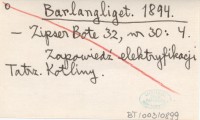 Barlangliget. 1894.
– Zipser Bote 32, nr 30: 4.
Zapowiedź elektryfikacji
Tatz. Kotliny.
BT.1003/10899